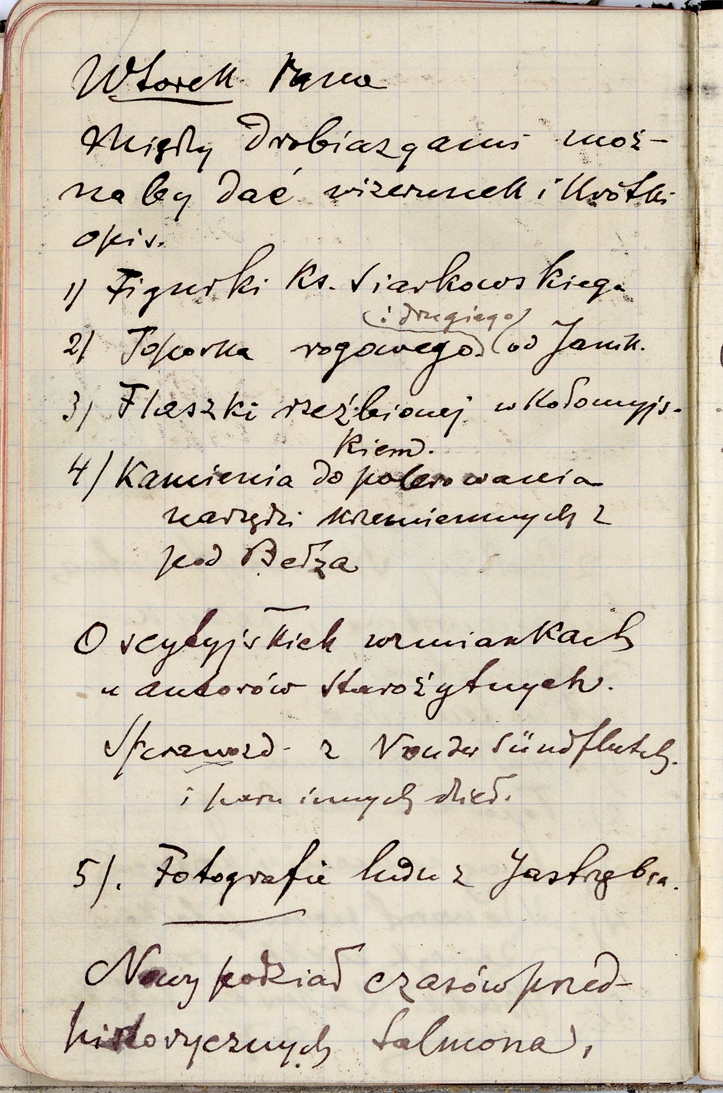 Wtorek rano
Między drobiazgami moż-
naby dać wizerunek i krótki
opis.
1) Figurki ks. Siarkowskiego
(i drugiego)
2) Toporka rogowego od Jamk.
3) Flaszki rzeźbionej w Kołomyjs-
kiem.
4) Kamienia do polerowania
narzędzi krzemiennych z
pod Bełza
O scytyjskich wzmiankach
u autorów starożytnych.
Sprawozd. z Sündfluth
i paru innych dzieł.
5). Fotografie ludu z Jastrzębia.
Nowy podział czasów przed-
historycznych Salmona,